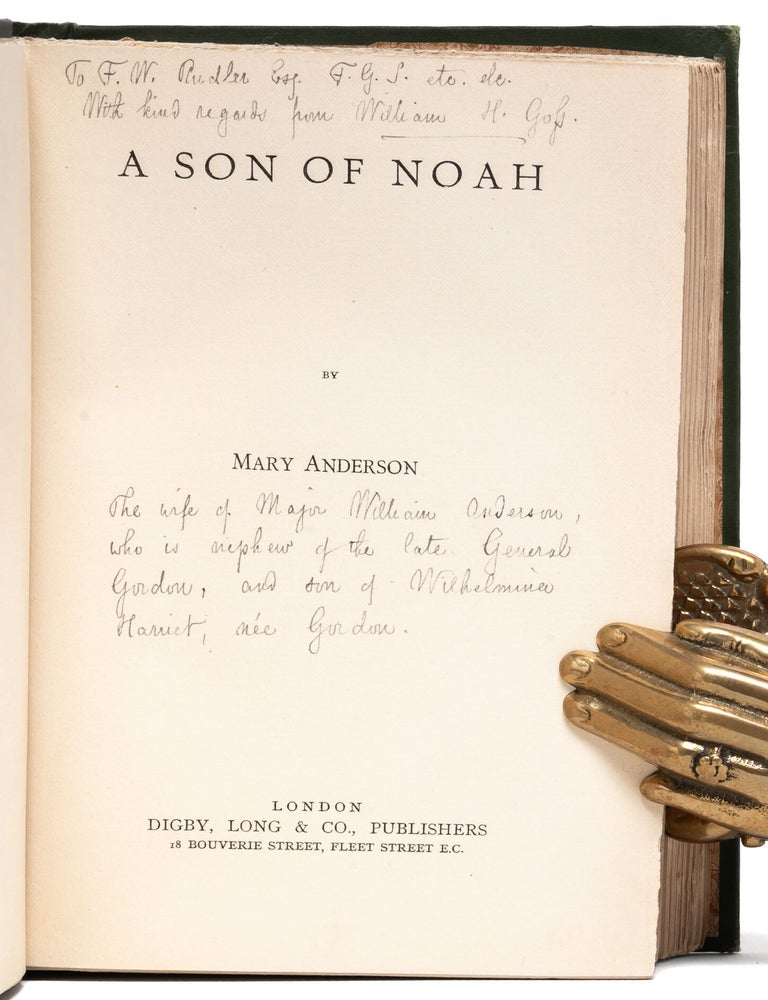 To F. W. Rudler Esq. F. G. S. etc. etc.
With kind regards from William H. Goſs.
A SON OF NOAH
BY
MARY ANDERSON
The wife of Major William Anderson,
who is nephew of the late General
Gordon, and son of Wilhelmina
Harriet, née Gordon.
LONDON
DIGBY, LONG & CO., PUBLISHERS
18 BOUVERIE STREET, FLEET STREET E.C.